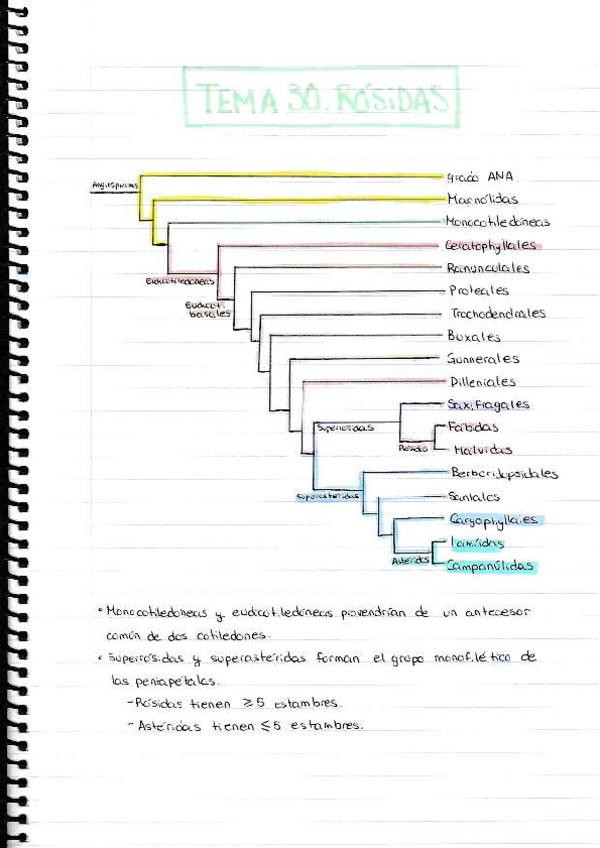 TEMA 30. RÓSIDAS
Angiospermas
grado ANA
Magnólidas
Monocotiledóneas
Ceratophyllales
Eudicotiledóneas
Ranunculales
Eudicot. basales
Proteales
Trochodendrales
Buxales
Gunnerales
Dilleniales
Saxifragales
Superrósidas
Fábidas
Rósidas
Málvidas
Berberidopsidales
Superastéridas
Santales
Caryophyllales
Lamiidas
Astéridas
Campanúlidas
• Monocotiledóneas y eudicotiledóneas provendrían de un antecesor
común de dos cotiledones.
• Superrósidas y superastéridas forman el grupo monofilético de
las pentapétalas.
- Rósidas tienen ≥5 estambres.
- Astéridas tienen ≤5 estambres.